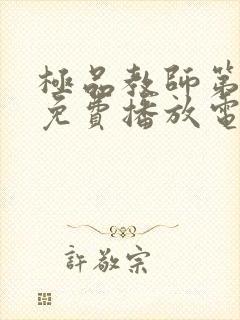 極品教師第
免費播放電
許敬宗